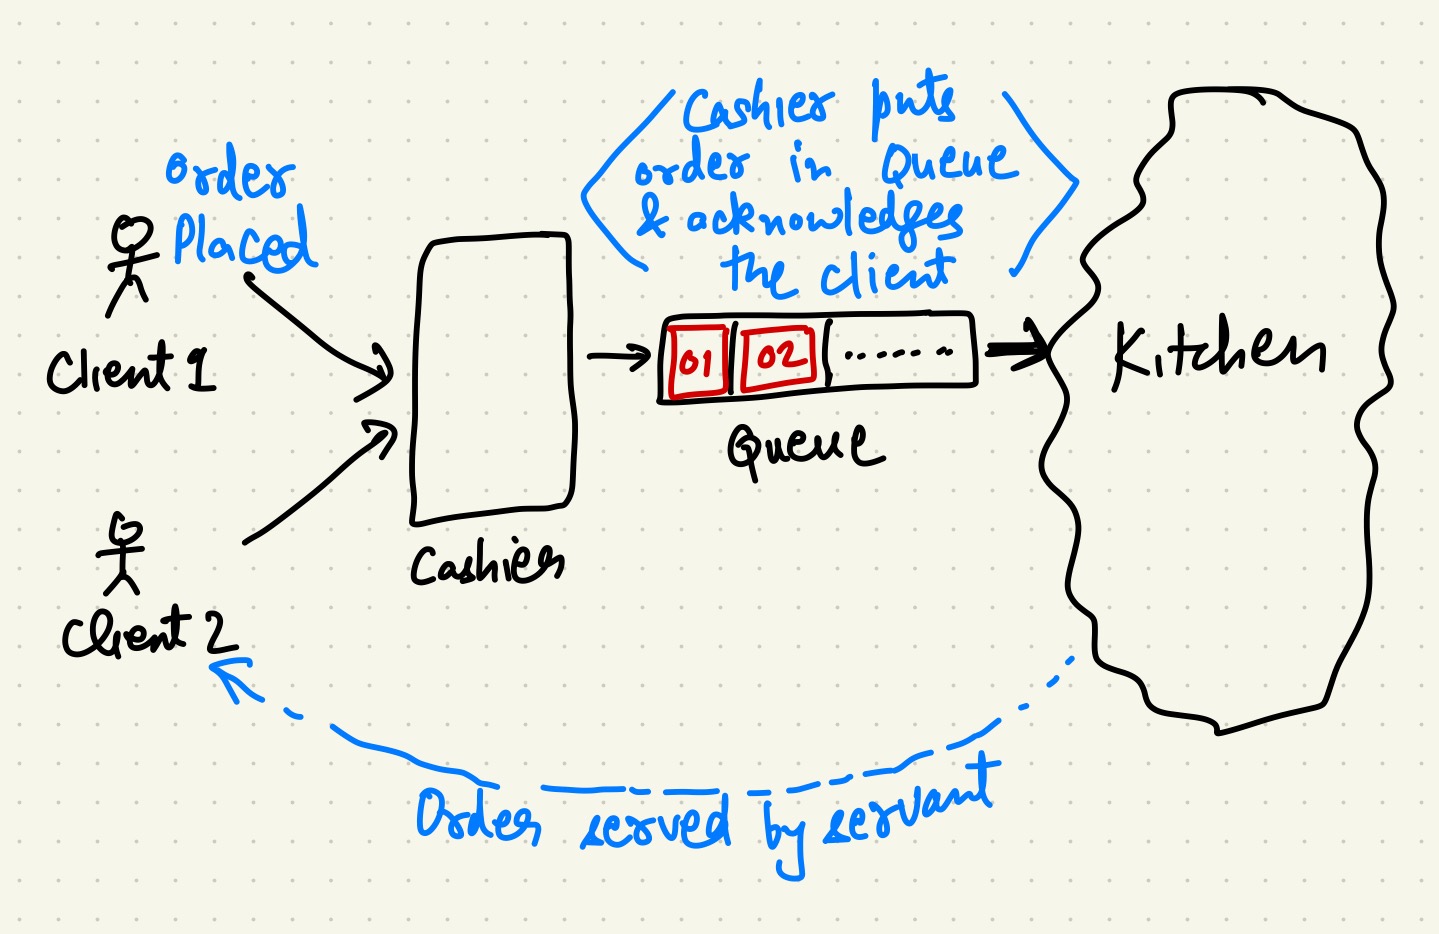 Order
Placed
Client 1
Client 2
Cashier
Cashier puts
order in Queue
& acknowledges
the client
01 02 ......
Queue
Kitchen
Order served by servant